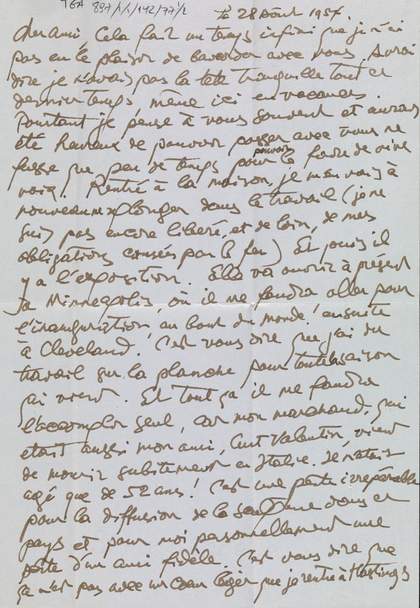 TGA 897/1/1/142/77/2
le 28 Août 1954.
cher ami Cela fait un temps infini que je n'ai
pas eu le plaisir de bavarder avec vous, à vrai
dire je n'avais pas la tête tranquille tout ce
dernier temps, même ici en vacances.
Pourtant je pense à vous souvent et aurais
été heureux de pouvoir passer avec vous ne
fusse que peu de temps pour pouvoir de vive
voix. Rentré à la maison, je m'en vais à
nouveau replonger dans le travail (je ne
suis pas encore libéré, et de loin, de mes
obligations causées par le feu) Et puis il
y a l'exposition. Elle va ouvrir à présent
à Minneapolis, où il me faudra aller pour
l'inauguration, au bout du monde! ensuite
à Cleveland. C'est vous dire que j'ai du
travail sur la planche pour toute la saison
qui vient. Et tout ça il me faudra
l'accomplir seul, car mon marchand, qui
était aussi mon ami, Curt Valentin, vient
de mourir subitement en Italie. Il n'était
agé que de 52 ans! C'est une perte irréparable
pour la diffusion de la sculpture dans ce
pays et pour moi personnellement une
perte d'un ami fidèle. C'est vous dire que
ça n'est pas avec un coeur léger que je rentre à Hastings